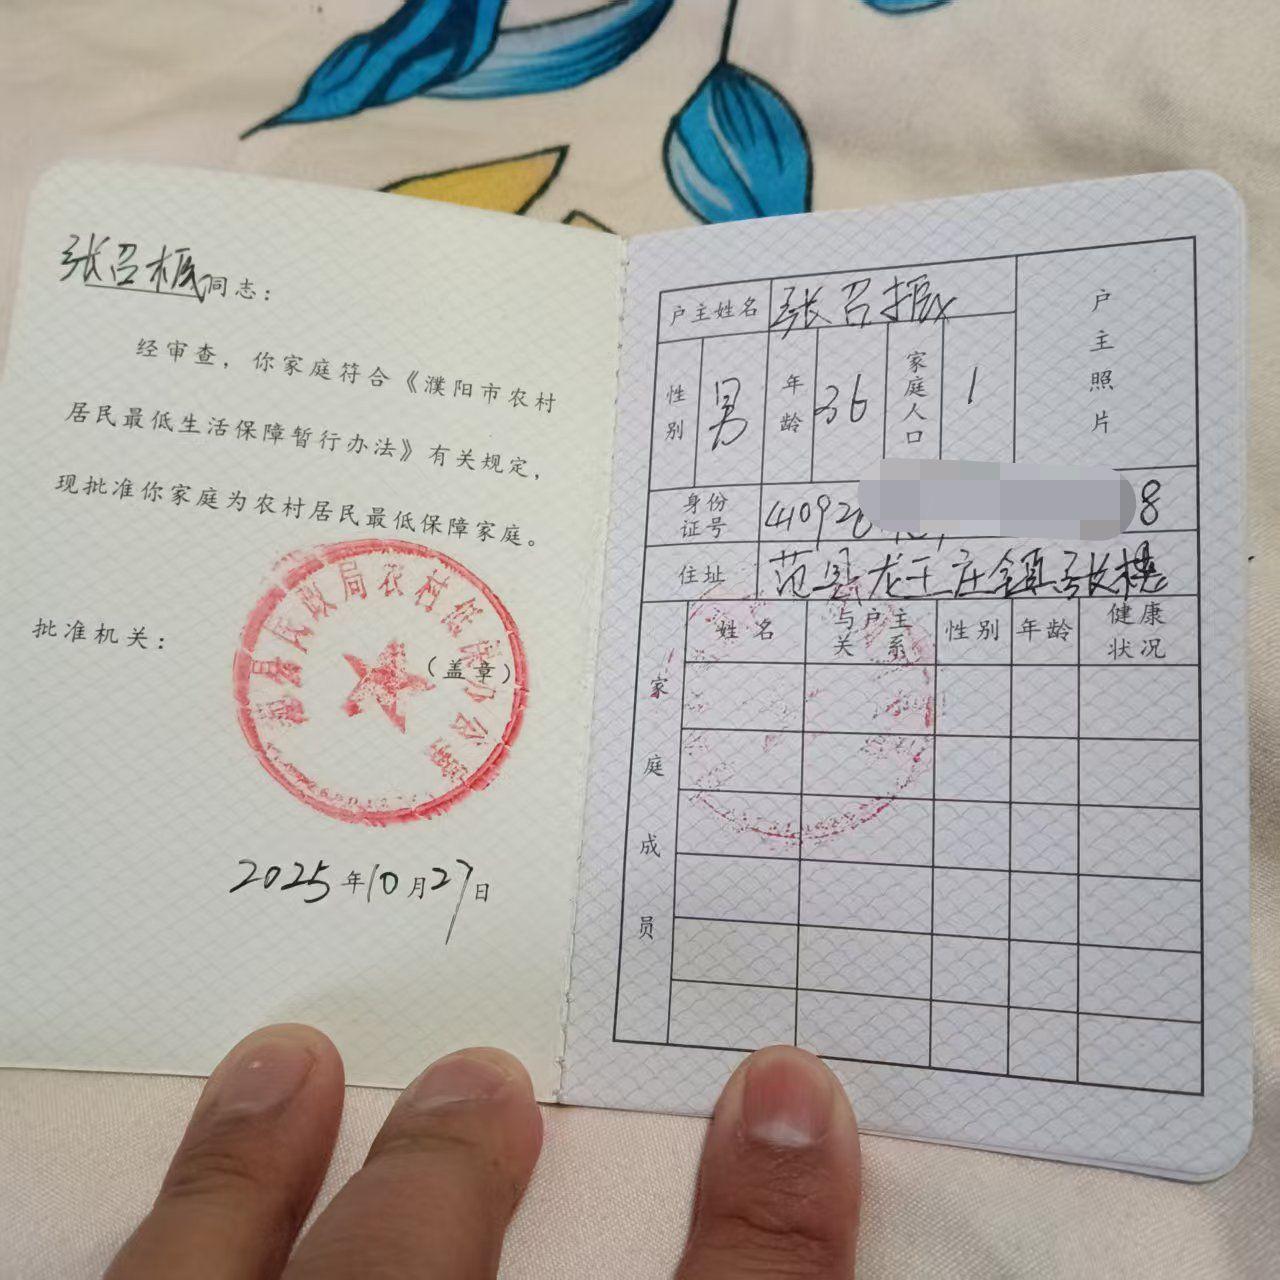 张召振同志：
经审查，你家庭符合《濮阳市农村
居民最低生活保障暂行办法》有关规定，
现批准你家庭为农村居民最低保障家庭。
批准机关：
（盖章）
范县民政局农村低保办公室
2025年10月27日
户主姓名 张召振
户主照片
性别 男 年龄 36 家庭人口 1
身份证号 40926 8
住址 范县龙王庄镇张楼
家庭成员
姓名 与户主关系 性别 年龄 健康状况